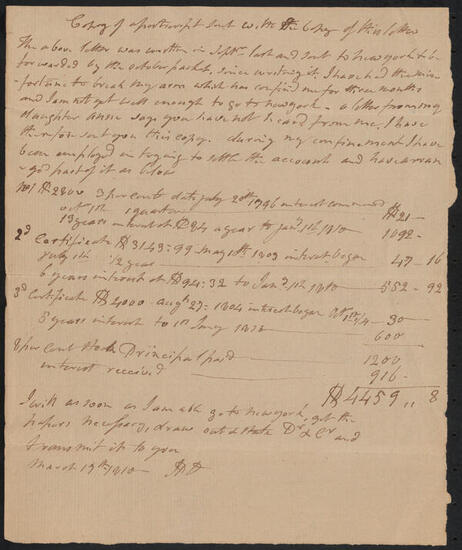 Copy of a postscript sent with the Copy of this letter
The above letter was written in Septr last and sent to new york to be
forwarded by the october packet, since writing it I have had the mis=
fortune to break my arm which has confined me for three months
and I am not yet well enough to go to new york - a letter from my
daughter says you have not heard from me, I have
therefore sent you this copy. during my confinement I have
been employed in trying to settle the account and have arran
=ged part of it as below
No 1 $2800 3 per cent date July 20th 1796 interest commenced
octr 1st 1 quarter $21 -
13 years interest at $84 a year to Jany 1st 1810 1092 -
2d Certificate $3143:99 may 10th 1803 interest began
July 1st 1/2 year 47 - 16
6 years interest at $94:32 to Jany 1st 1810 552 - 92
3d Certificate $4000 - augt 27: 1804 interest began octr 1st 1/4 - 30
5 years interest to 1st Jany 1810 600
8 per Cent Stock Principal paid 1200
interest received 916 -
$4459 ,, 8
I will as soon as I am able go to new york, get the
papers necessary, draw out a state Dr & Cr and
transmit it to you
March 19th 1810 -